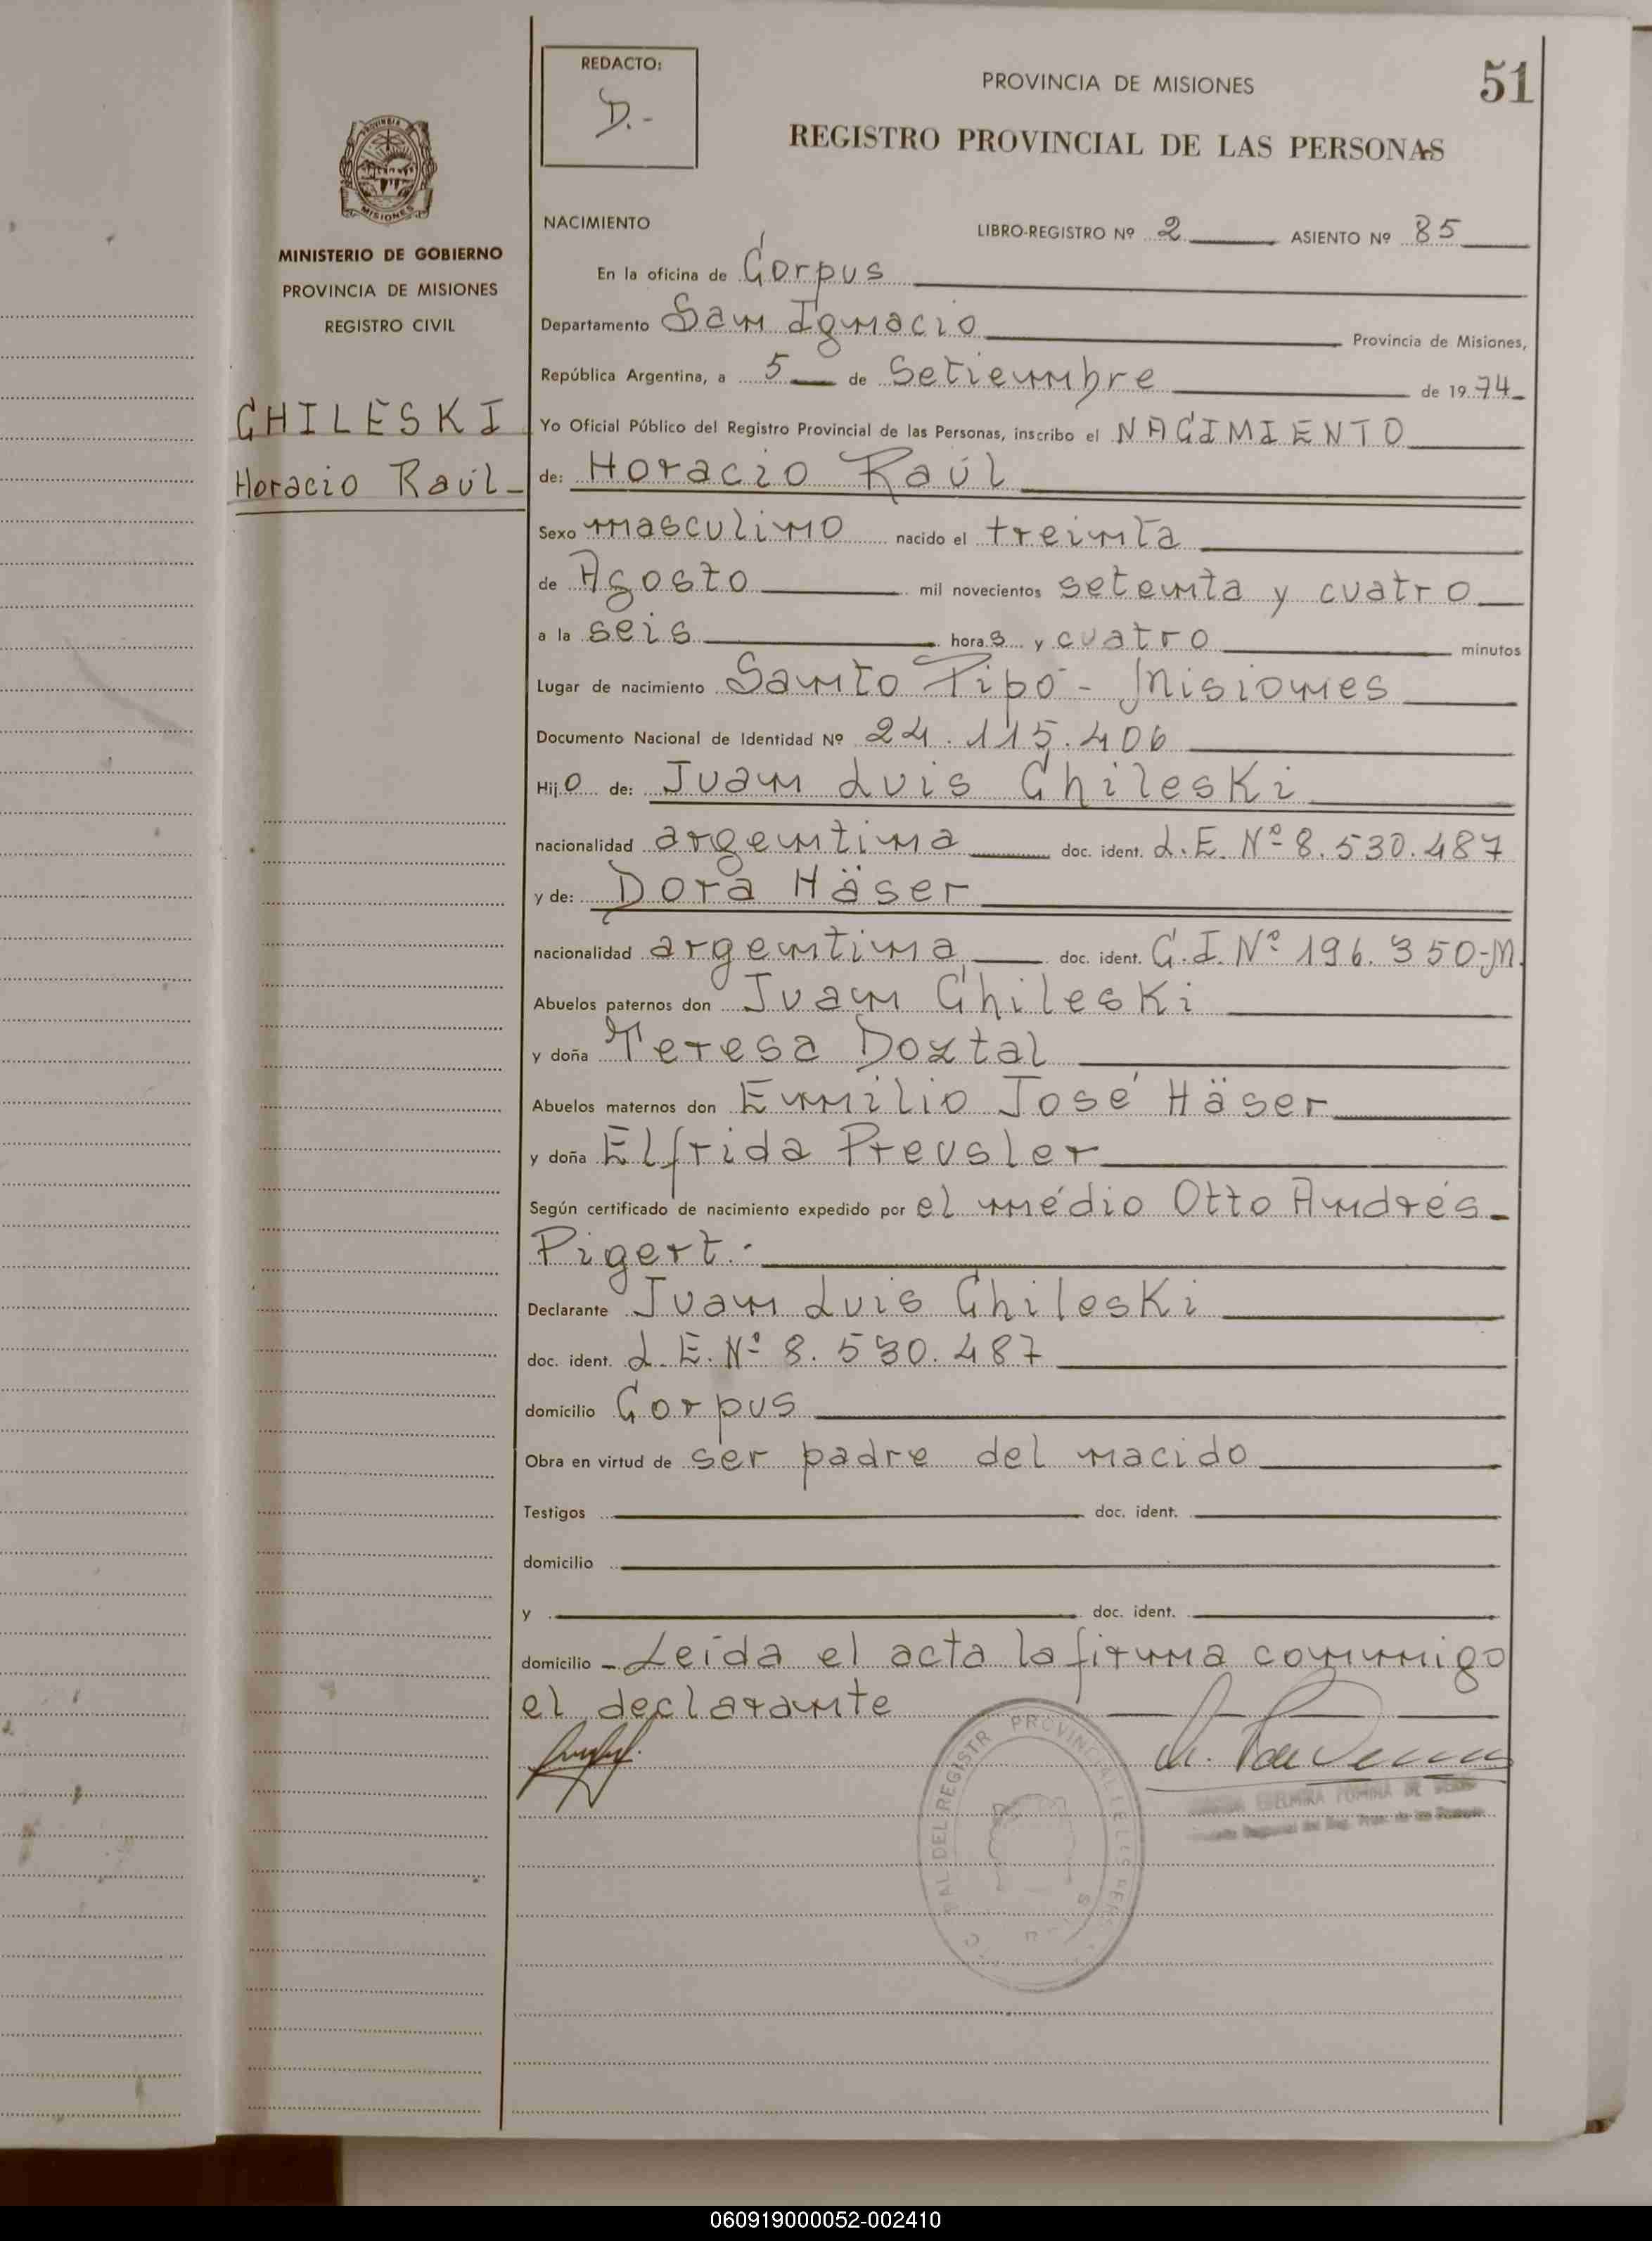 REDACTO:
D.-
PROVINCIA DE MISIONES
51
REGISTRO PROVINCIAL DE LAS PERSONAS
PROVINCIA DE
MISIONES
MINISTERIO DE GOBIERNO
PROVINCIA DE MISIONES
REGISTRO CIVIL
CHILESKI
Horacio Raúl-
NACIMIENTO LIBRO-REGISTRO Nº 2 ASIENTO Nº 85
En la oficina de Corpus
Departamento San Ignacio Provincia de Misiones,
República Argentina, a 5 de Setiembre de 1974
Yo Oficial Público del Registro Provincial de las Personas, inscribo el NACIMIENTO
de: Horacio Raúl
Sexo masculino nacido el treinta
de Agosto mil novecientos setenta y cuatro
a la seis hora s y cuatro minutos
Lugar de nacimiento Santo Pipó - Misiones
Documento Nacional de Identidad Nº 24.115.406
Hijo de: Juan Luis Chileski
nacionalidad argentina doc. ident. L.E. Nº 8.530.487
y de: Dora Häser
nacionalidad argentina doc. ident. C.I. Nº 196.350-M.
Abuelos paternos don Juan Chileski
y doña Teresa Doztal
Abuelos maternos don Emilio José Häser
y doña Elfrida Preusler
Según certificado de nacimiento expedido por el médio Otto Andrés
Pigert.-
Declarante Juan Luis Chileski
doc. ident. L.E. Nº 8.530.487
domicilio Corpus
Obra en virtud de ser padre del nacido
Testigos doc. ident.
domicilio
y doc. ident.
domicilio - Leída el acta la firma conmigo
el declarante
060919000052-002410